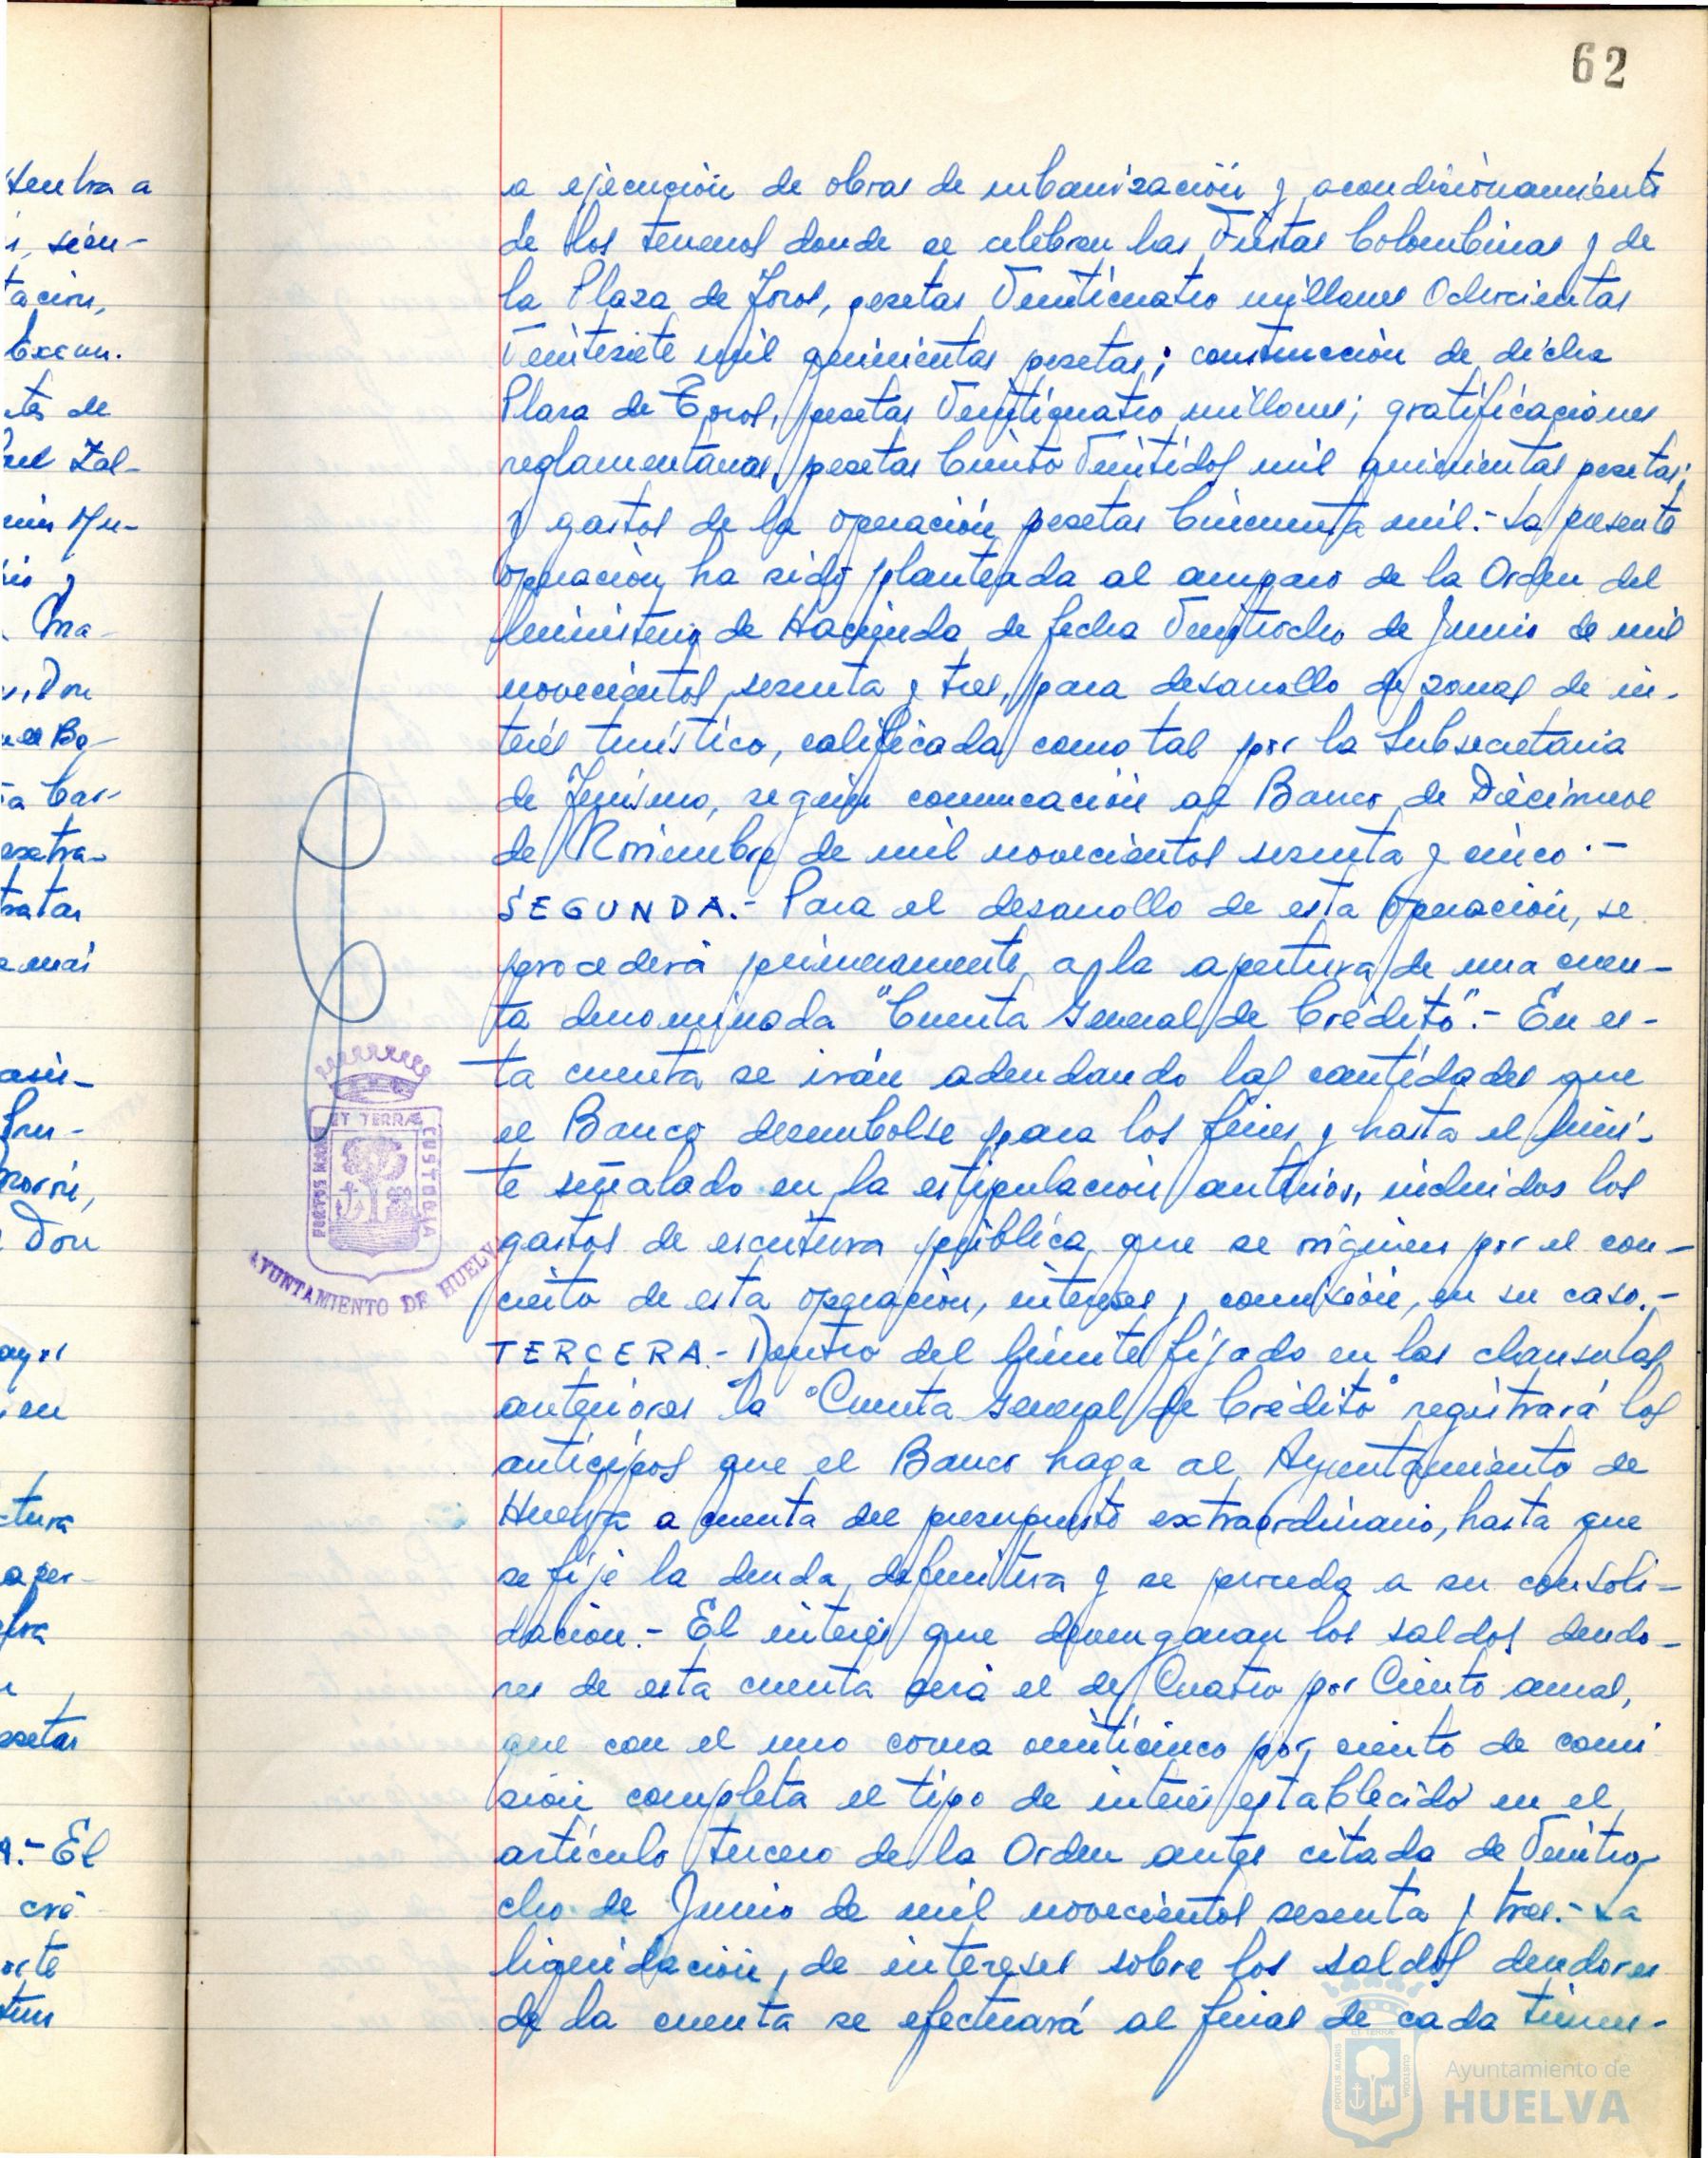 62
a ejecución de obras de urbanización y acondicionamiento
de los terrenos donde se celebran las Fiestas Colombinas y de
la Plaza de Toros, pesetas Veinticuatro millones Ochocientas
Veintesiete mil quinientas pesetas; construcción de dicha
Plaza de Toros, pesetas Veinticuatro millones; gratificaciones
reglamentarias, pesetas Ciento Veintidos mil quinientas pesetas;
y gastos de la operación pesetas Cincuenta mil.- La presente
operación ha sido planteada al amparo de la Orden del
Ministerio de Hacienda de fecha Veintiocho de Junio de mil
novecientos sesenta y tres, para desarrollo de zonas de in-
terés turístico, calificada como tal por la Subsecretaria
de Turismo, según comunicación al Banco de Diecinueve
de Noviembre de mil novecientos sesenta y cinco.-
SEGUNDA.- Para el desarrollo de esta operación, se
procederá primeramente a la apertura de una cuen-
ta denominada "Cuenta General de Crédito".- En es-
ta cuenta se irán adeudando las cantidades que
el Banco desembolse para los fines y hasta el lími-
te señalado en la estipulación anterior, incluidos los
gastos de escritura pública que se originen por el con-
cierto de esta operación, intereses y comisión, en su caso.-
TERCERA.- Dentro del límite fijado en las clausulas
anteriores la "Cuenta General de Crédito" registrará los
anticipos que el Banco haga al Ayuntamiento de
Huelva a cuenta del presupuesto extraordinario, hasta que
se fije la deuda definitiva y se proceda a su consoli-
dación.- El interés que devengaran los saldos deudo-
res de esta cuenta será el de Cuatro por Ciento anual,
que con el uno coma veinticinco por ciento de comi
sión completa el tipo de interés establecido en el
artículo tercero de la Orden antes citada de Veintio-
cho de Junio de mil novecientos sesenta y tres.- La
liquidación, de intereses sobre los saldos deudores
de la cuenta se efectuará al final de cada trimes-
PORTUS MARIS ET TERRAE CUSTODIA
AYUNTAMIENTO DE HUELV
Ayuntamiento de
HUELVA